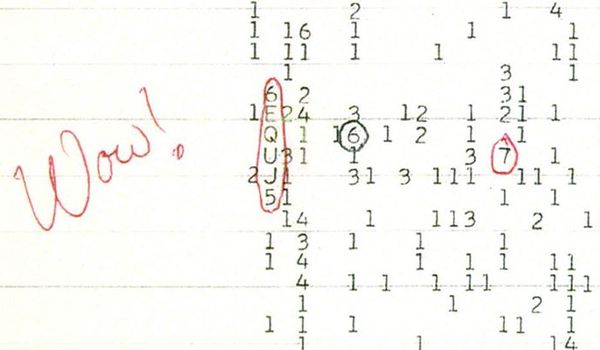 1 2 1 4
1 16 1 1 1
1 11 1 1 11
1 3 1
6 2 31
1E24 3 12 1 21 1
Wow!
Q 1 16 1 2 1 11
U31 1 3 7 1
2J1 31 3 111 11 1
51 1 1
14 1 113 2 1
1 3 1 1 1
1 4 1 1 1 11
4 1 1 1 11 111
1 1 2 1
1 1 1 11 1
1 1 14